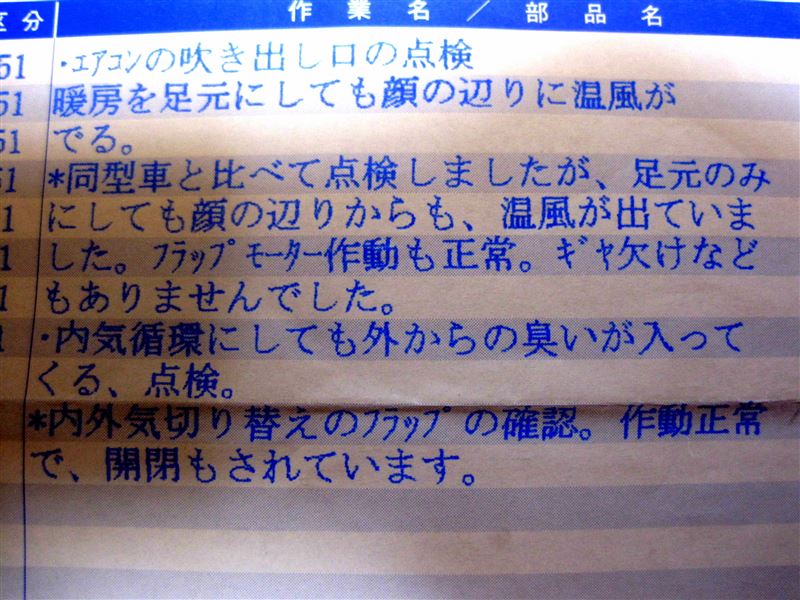 区分 作業名／部品名
51 ・ｴｱｺﾝの吹き出し口の点検
51 暖房を足元にしても顔の辺りに温風が
51 でる。
51 *同型車と比べて点検しましたが、足元のみ
1 にしても顔の辺りからも、温風が出ていま
1 した。ﾌﾗｯﾌﾟﾓｰﾀｰ作動も正常。ｷﾞﾔ欠けなど
1 もありませんでした。
1 ・内気循環にしても外からの臭いが入って
くる、点検。
*内外気切り替えのﾌﾗｯﾌﾟの確認。作動正常
で、開閉もされています。